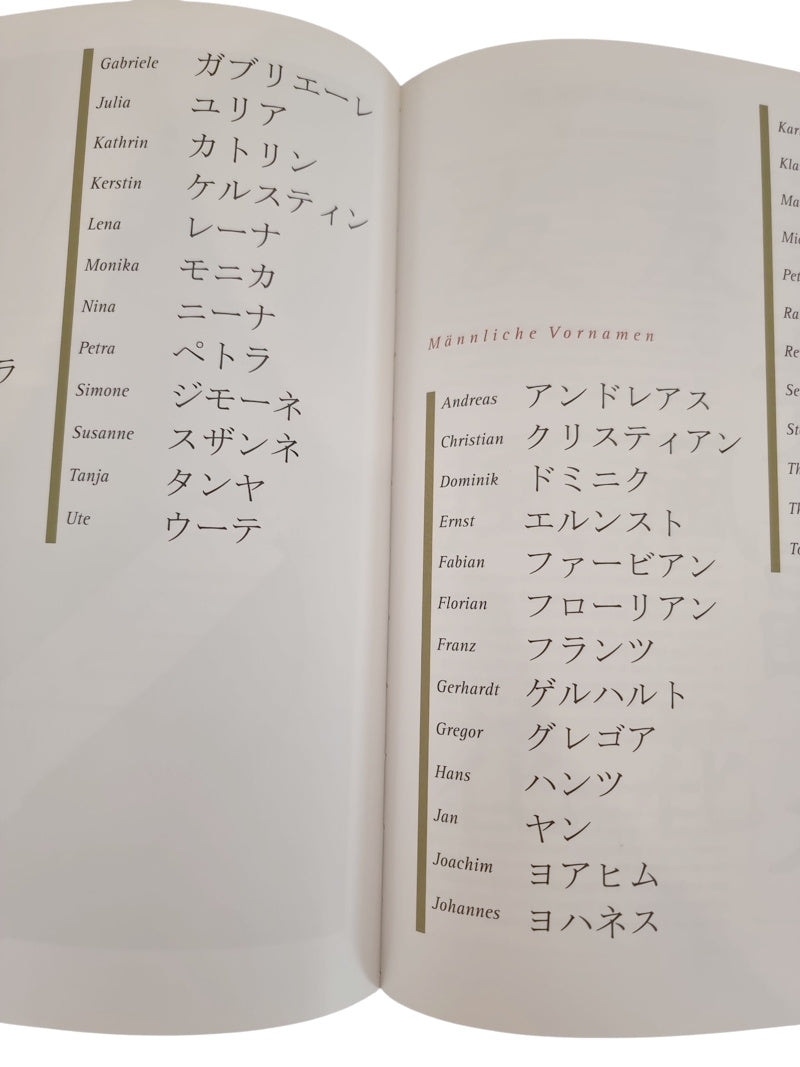 ラ
Gabriele ガブリエーレ
Julia ユリア
Kathrin カトリン
Kerstin ケルスティン
Lena レーナ
Monika モニカ
Nina ニーナ
Petra ペトラ
Simone ジモーネ
Susanne スザンネ
Tanja タンヤ
Ute ウーテ
Männliche Vornamen
Andreas アンドレアス
Christian クリスティアン
Dominik ドミニク
Ernst エルンスト
Fabian ファービアン
Florian フローリアン
Franz フランツ
Gerhardt ゲルハルト
Gregor グレゴア
Hans ハンツ
Jan ヤン
Joachim ヨアヒム
Johannes ヨハネス